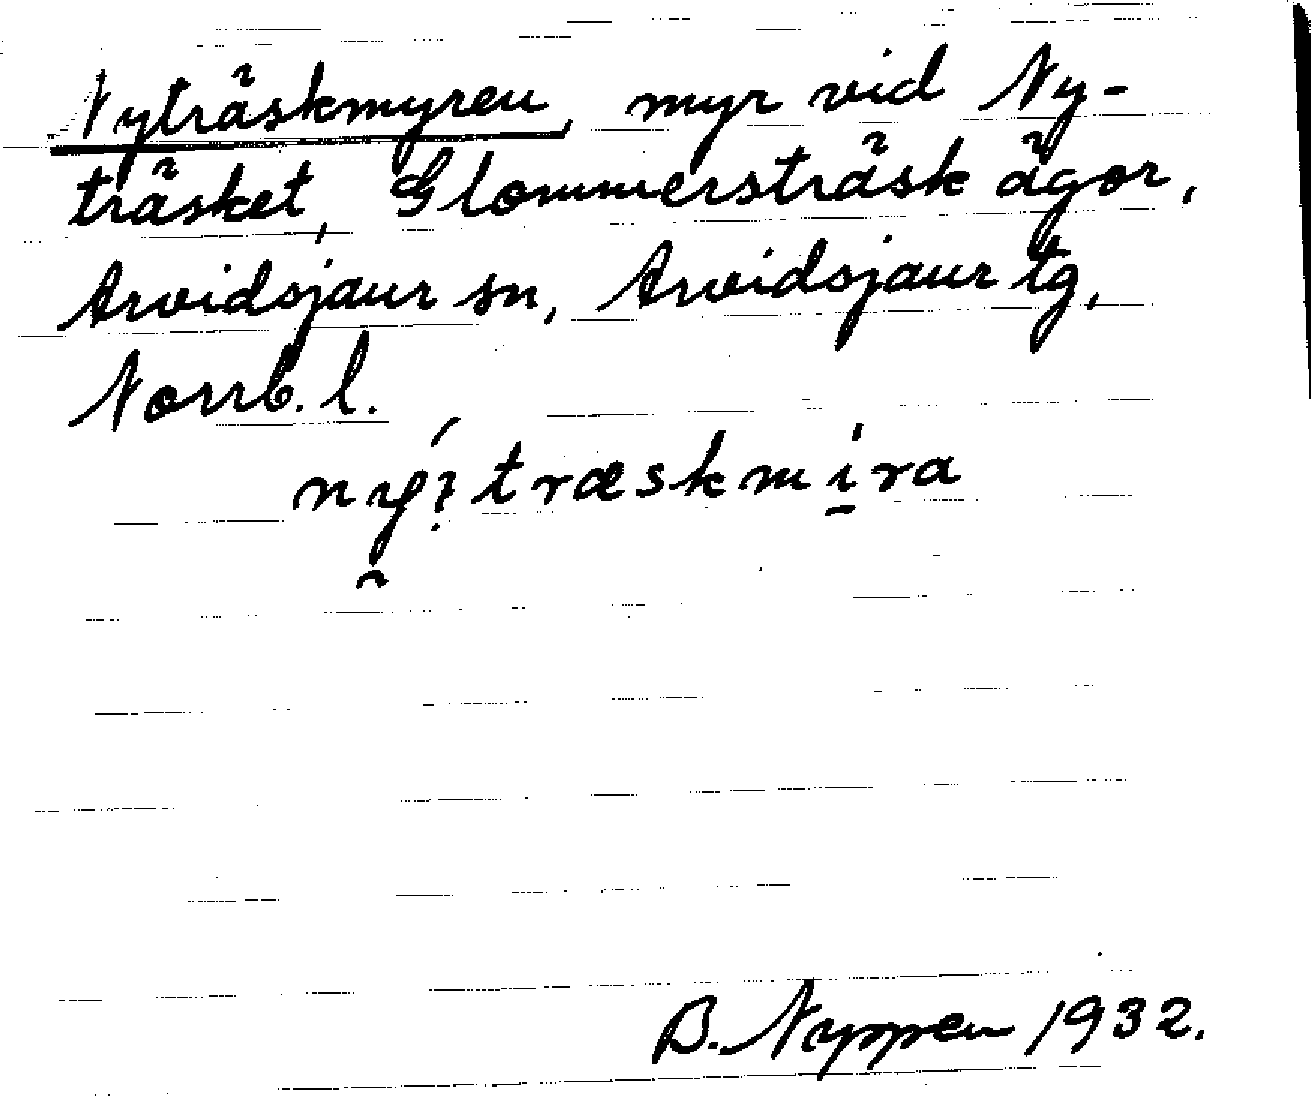 Nyträskmyren, myr vid Ny-
träsket, Glommersträsk ägor,
Arvidsjaur sn, Arvidsjaur tg,
Norrb. l.
træskmira
B. Nyppen 1932.